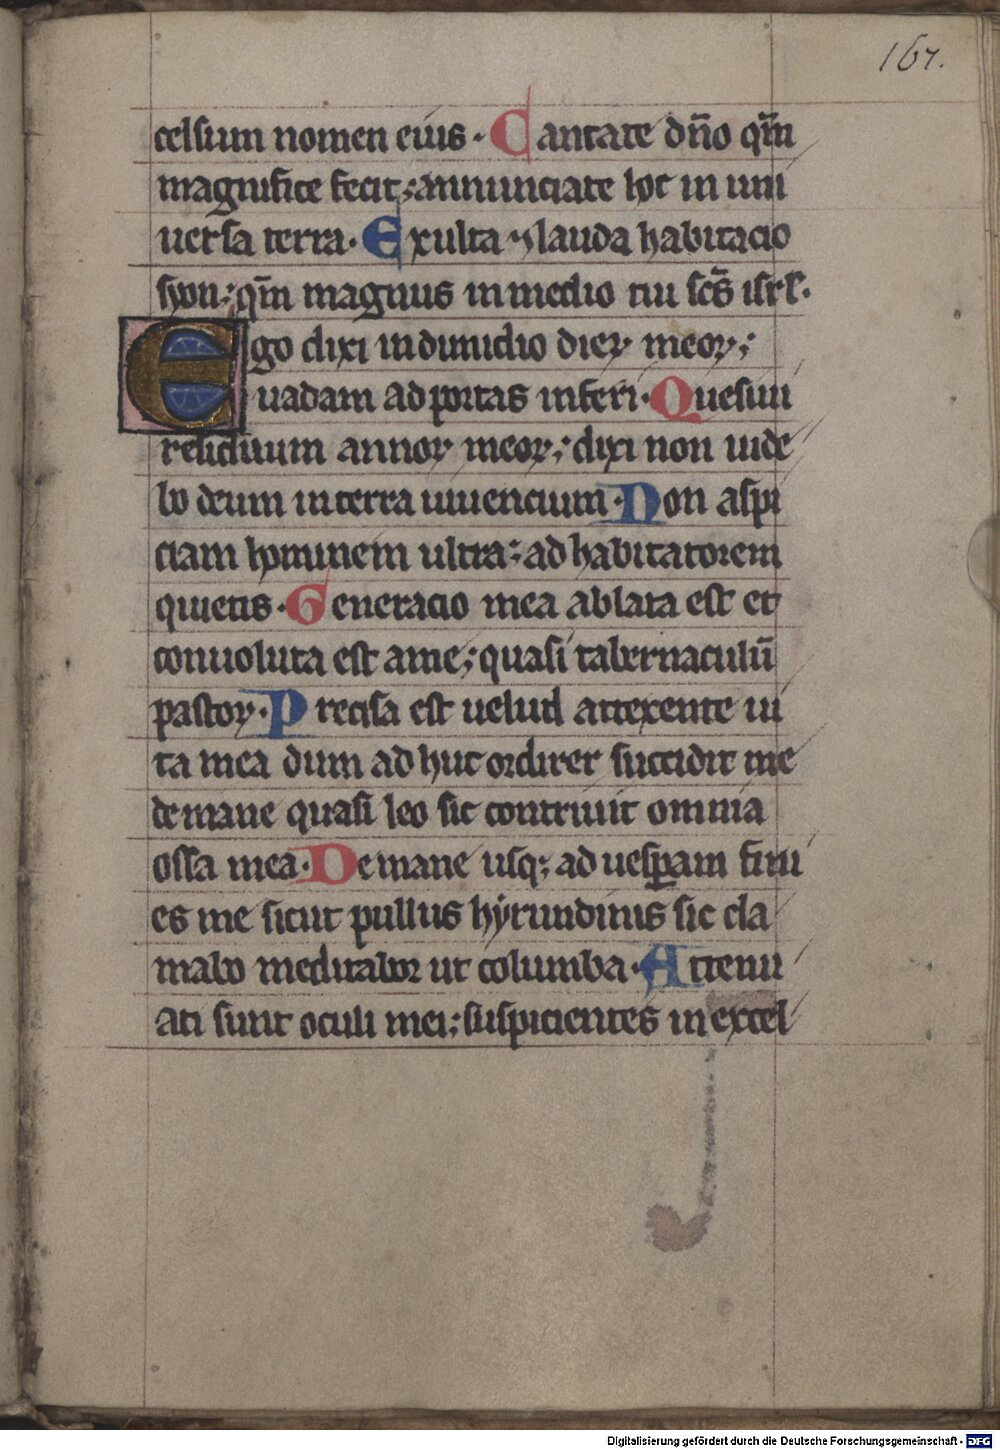 167.
celsum nomen eius · Cantate dn̄o qm̄
magnifice fecit; annunciate hoc in uni
uersa terra · Exulta ⁊ lauda habitacio
syon; qm̄ magnus in medio tui sc̄s isrl̄.
Ego dixi in dimidio dieꝝ meoꝝ;
uadam ad portas inferi · Quesiui
residuum annoꝝ meoꝝ; dixi non uide
bo deum in terra uiuencium · Non aspi
ciam hominem ultra; ad habitatorem
quietis · Generacio mea ablata est et
conuoluta est a me; quasi tabernaculū
pastoꝝ · Precisa est uelud a texente ui
ta mea dum ad huc ordirer succidit me
de mane quasi leo sic contriuit omnia
ossa mea · De mane usq; ad uesꝑam fini
es me sicut pullus hyrundinis sic cla
mabo meditabor ut columba · Attenu
ati sunt oculi mei; suspicientes in excel
Digitalisierung gefördert durch die Deutsche Forschungsgemeinschaft - DFG